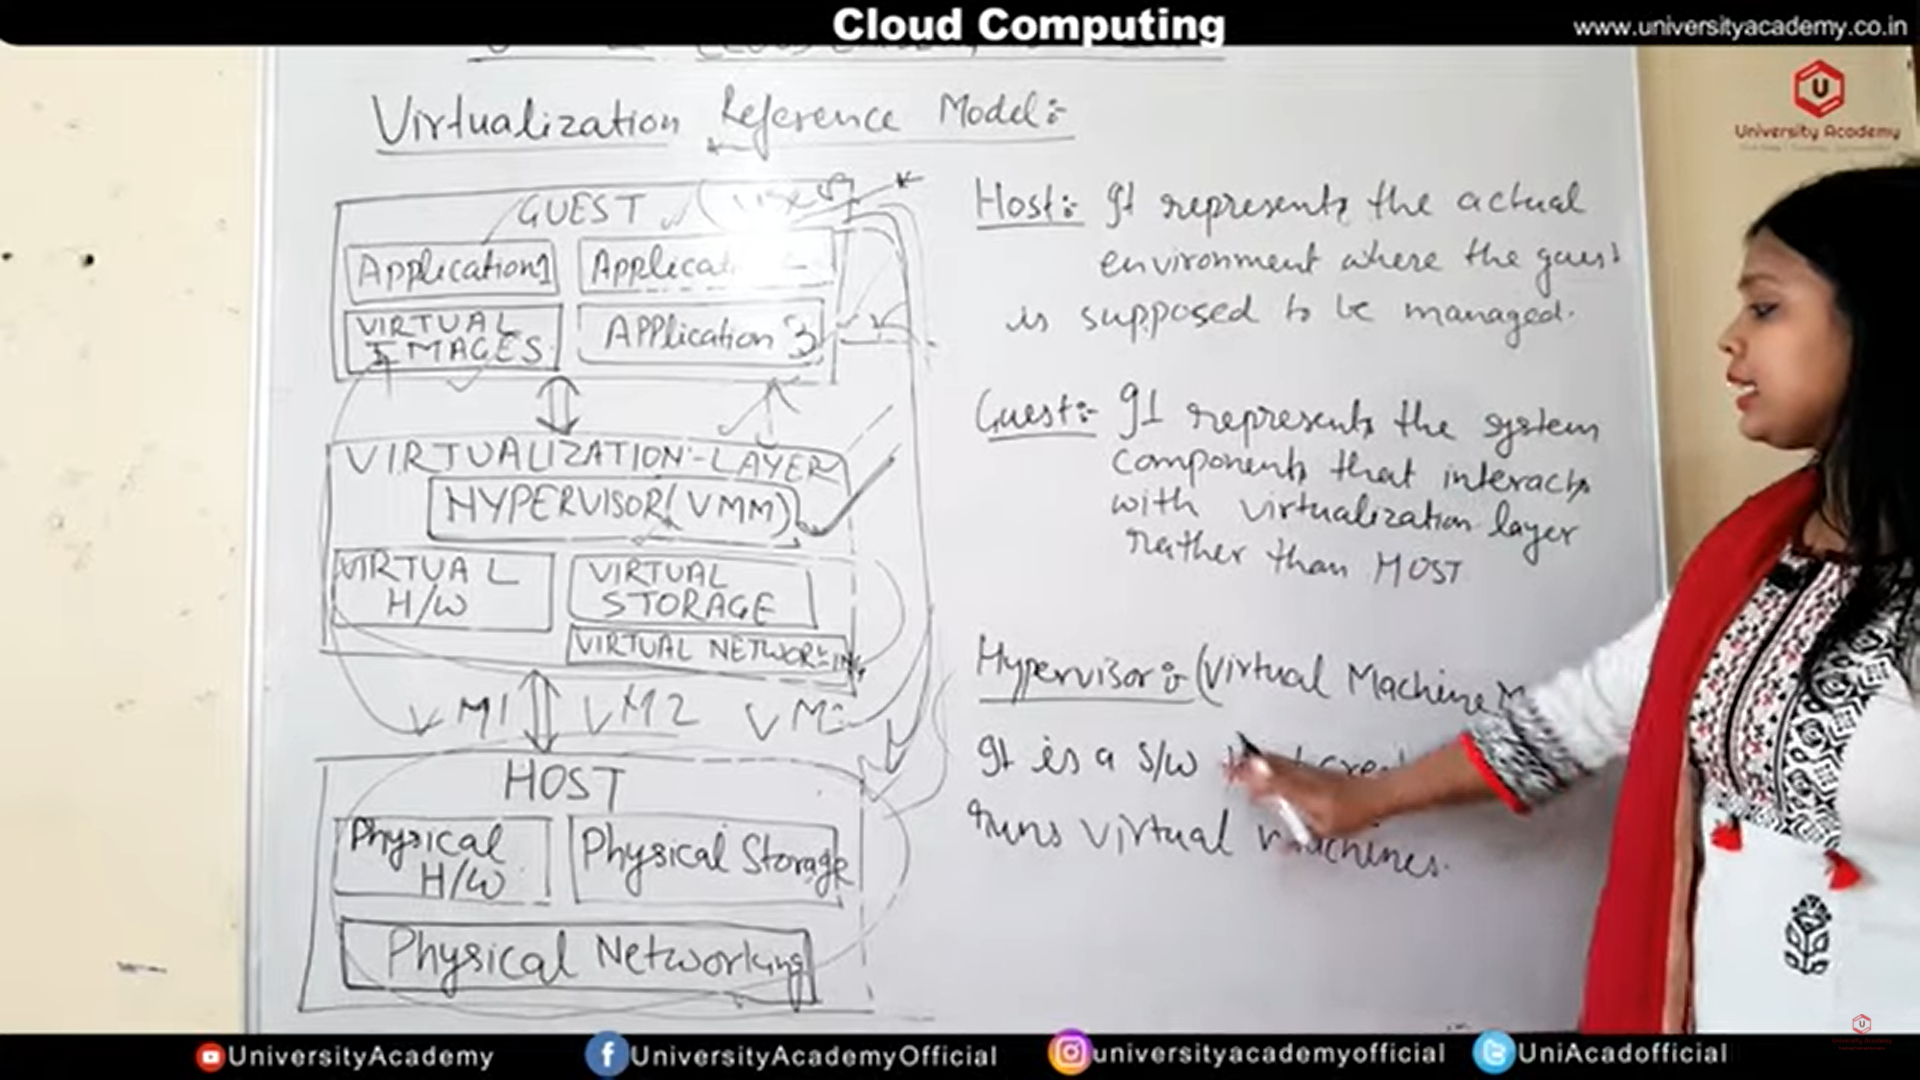 Cloud Computing
www.universityacademy.co.in
U
University Academy
Virtualization Reference Model:-
GUEST (User)
Application1
VIRTUAL IMAGES
APPlication 3
VIRTUALIZATION-LAYER
HYPERVISOR(VMM)
VIRTUAL
H/W
VIRTUAL
STORAGE
VIRTUAL NETWORKING
VM1 VM2 VM
HOST
Physical
H/W
Physical Storage
Physical Networking
Host:- It represents the actual
environment where the guest
is supposed to be managed.
Guest:- It represents the system
components that interacts
with virtualization layer
rather than HOST
Hypervisor:- (Virtual Machine M
It is a S/W
runs virtual machines.
UniversityAcademy
UniversityAcademyOfficial
universityacademyofficial
UniAcadofficial